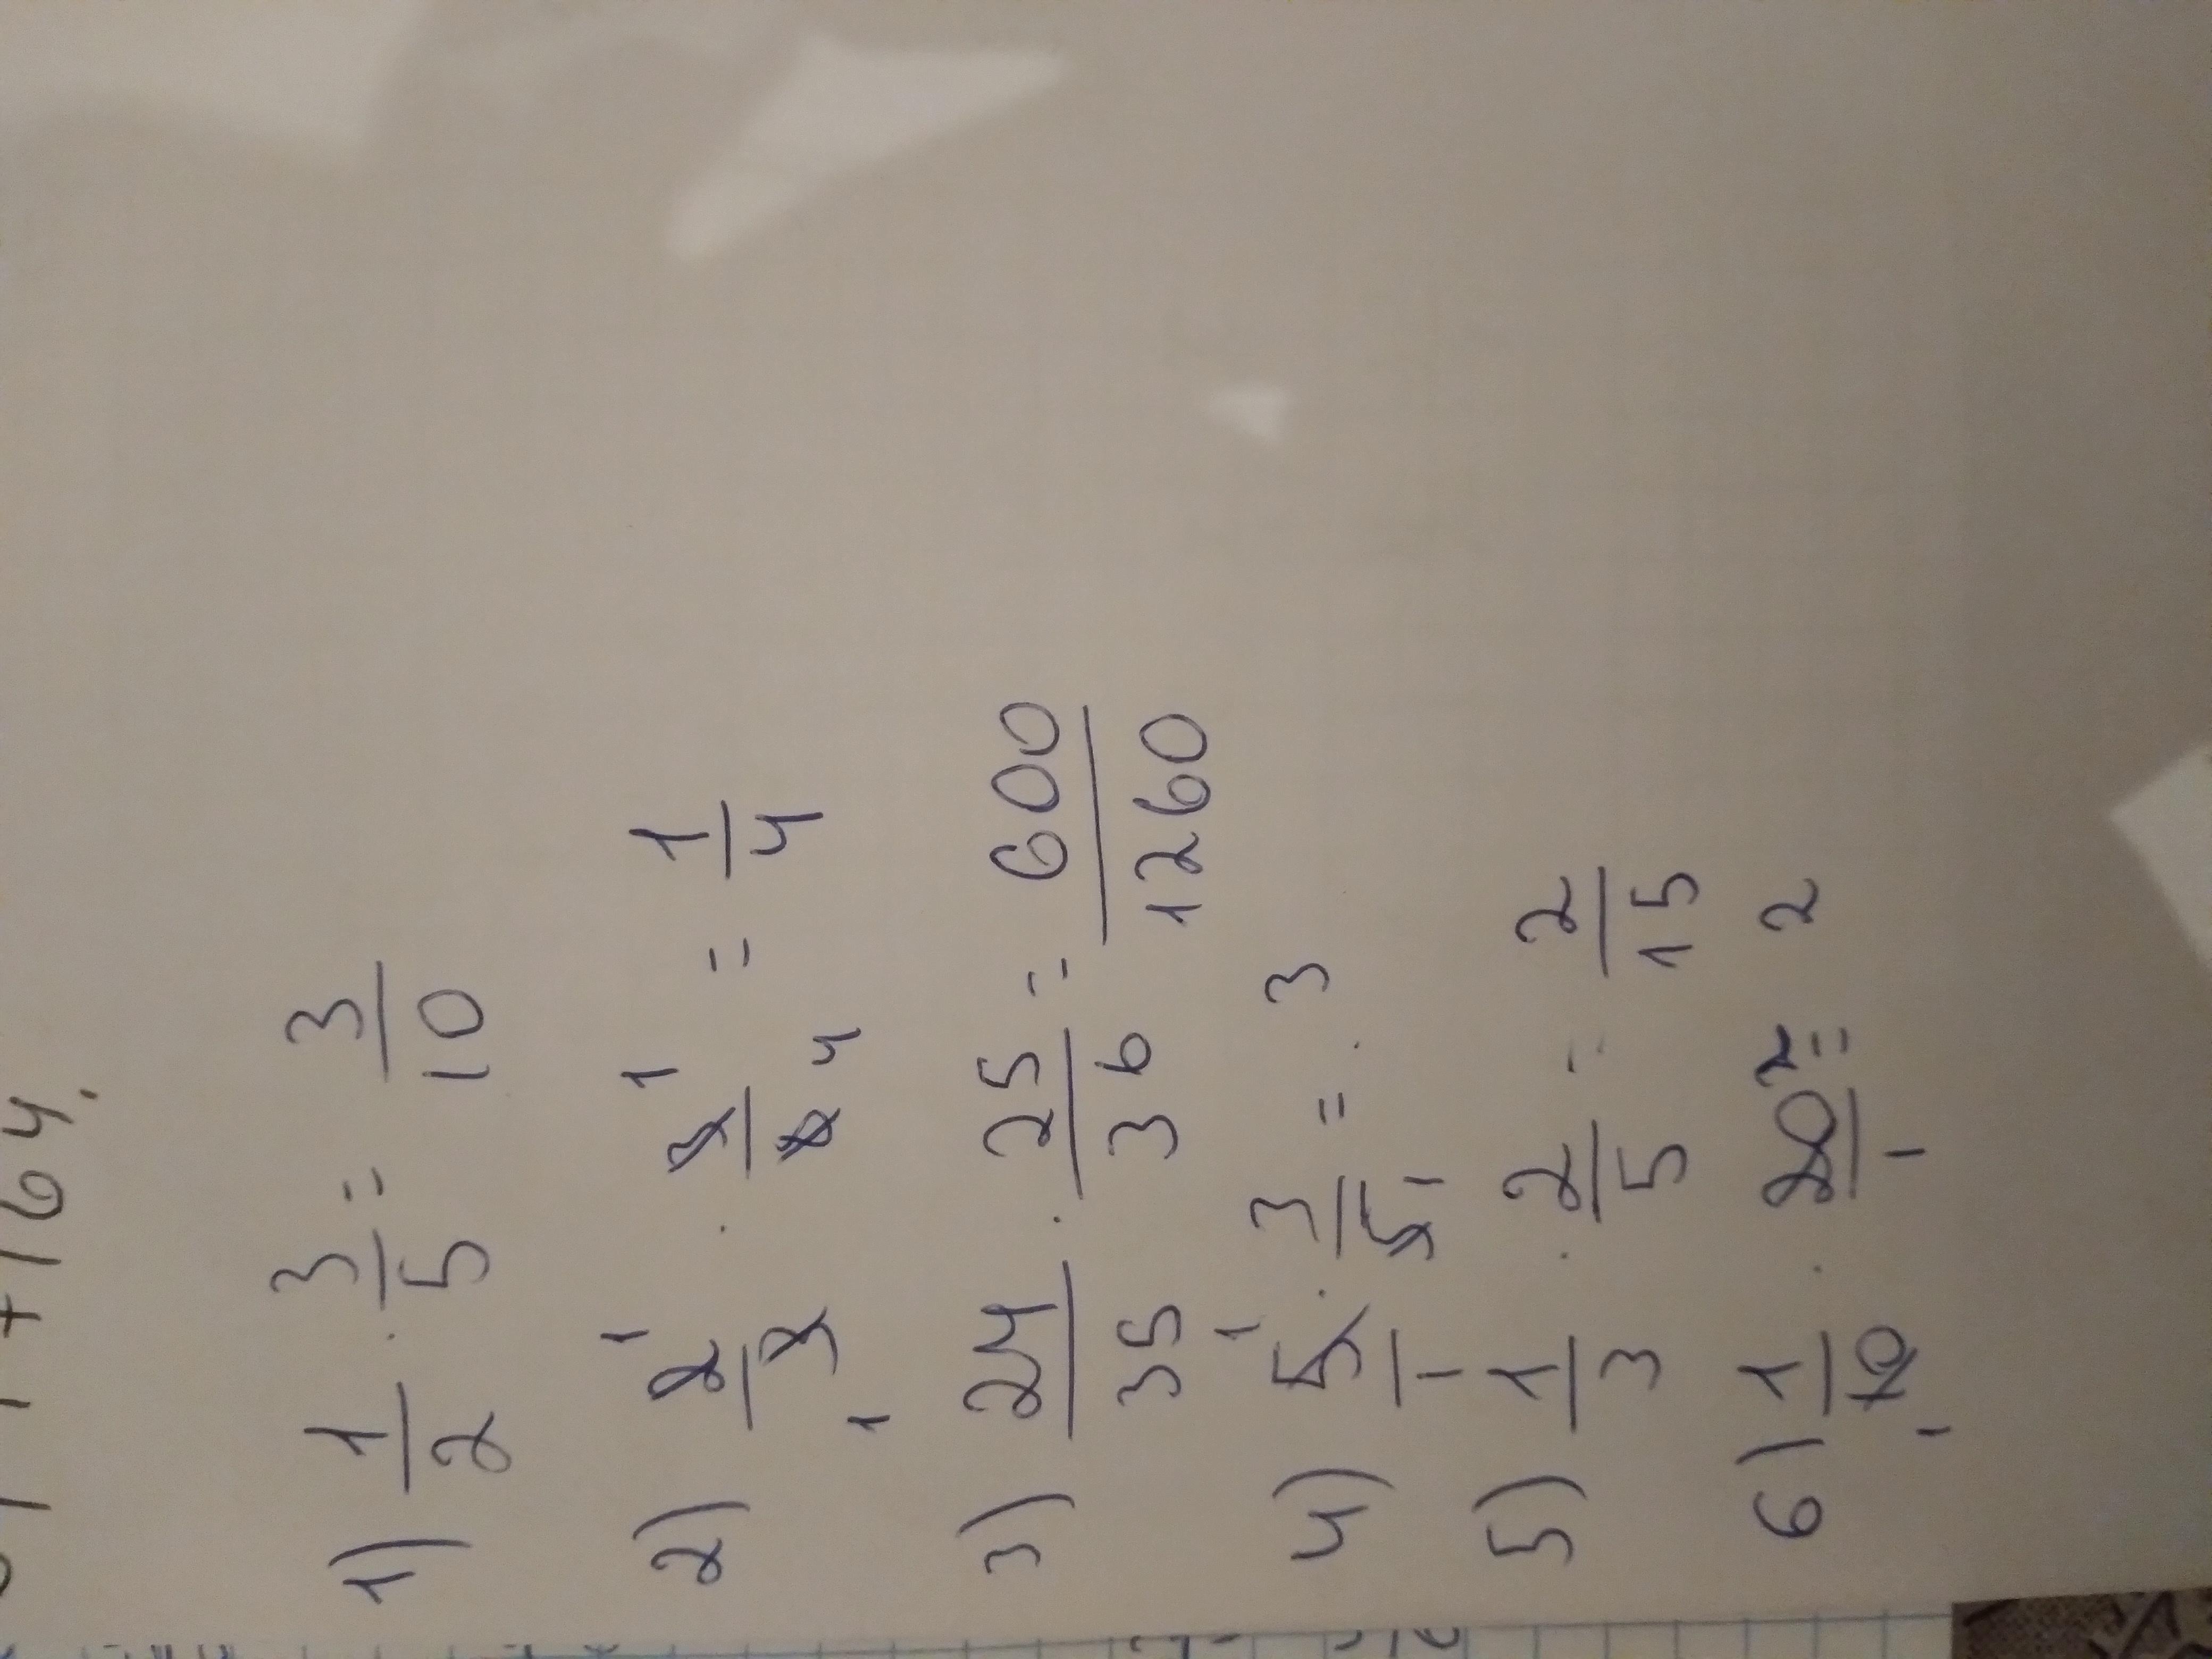 +164.
1) 1/2 · 3/5 = 3/10
2) 2/3 1 1 · 3/8 1 4 = 1/4
3) 24/35 · 25/36 = 600/1260
4) 5/1 1 · 3/5 1 = 3
5) 1/3 · 2/5 = 2/15
6) 1/10 1 · 20/1 2 = 2